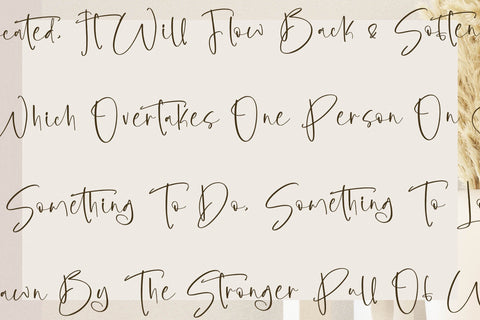 eated. It Will Flow Back & Soften
Which Overtakes One Person On
Something To Do. Something To Lo
awn By The Stronger Pull Of W